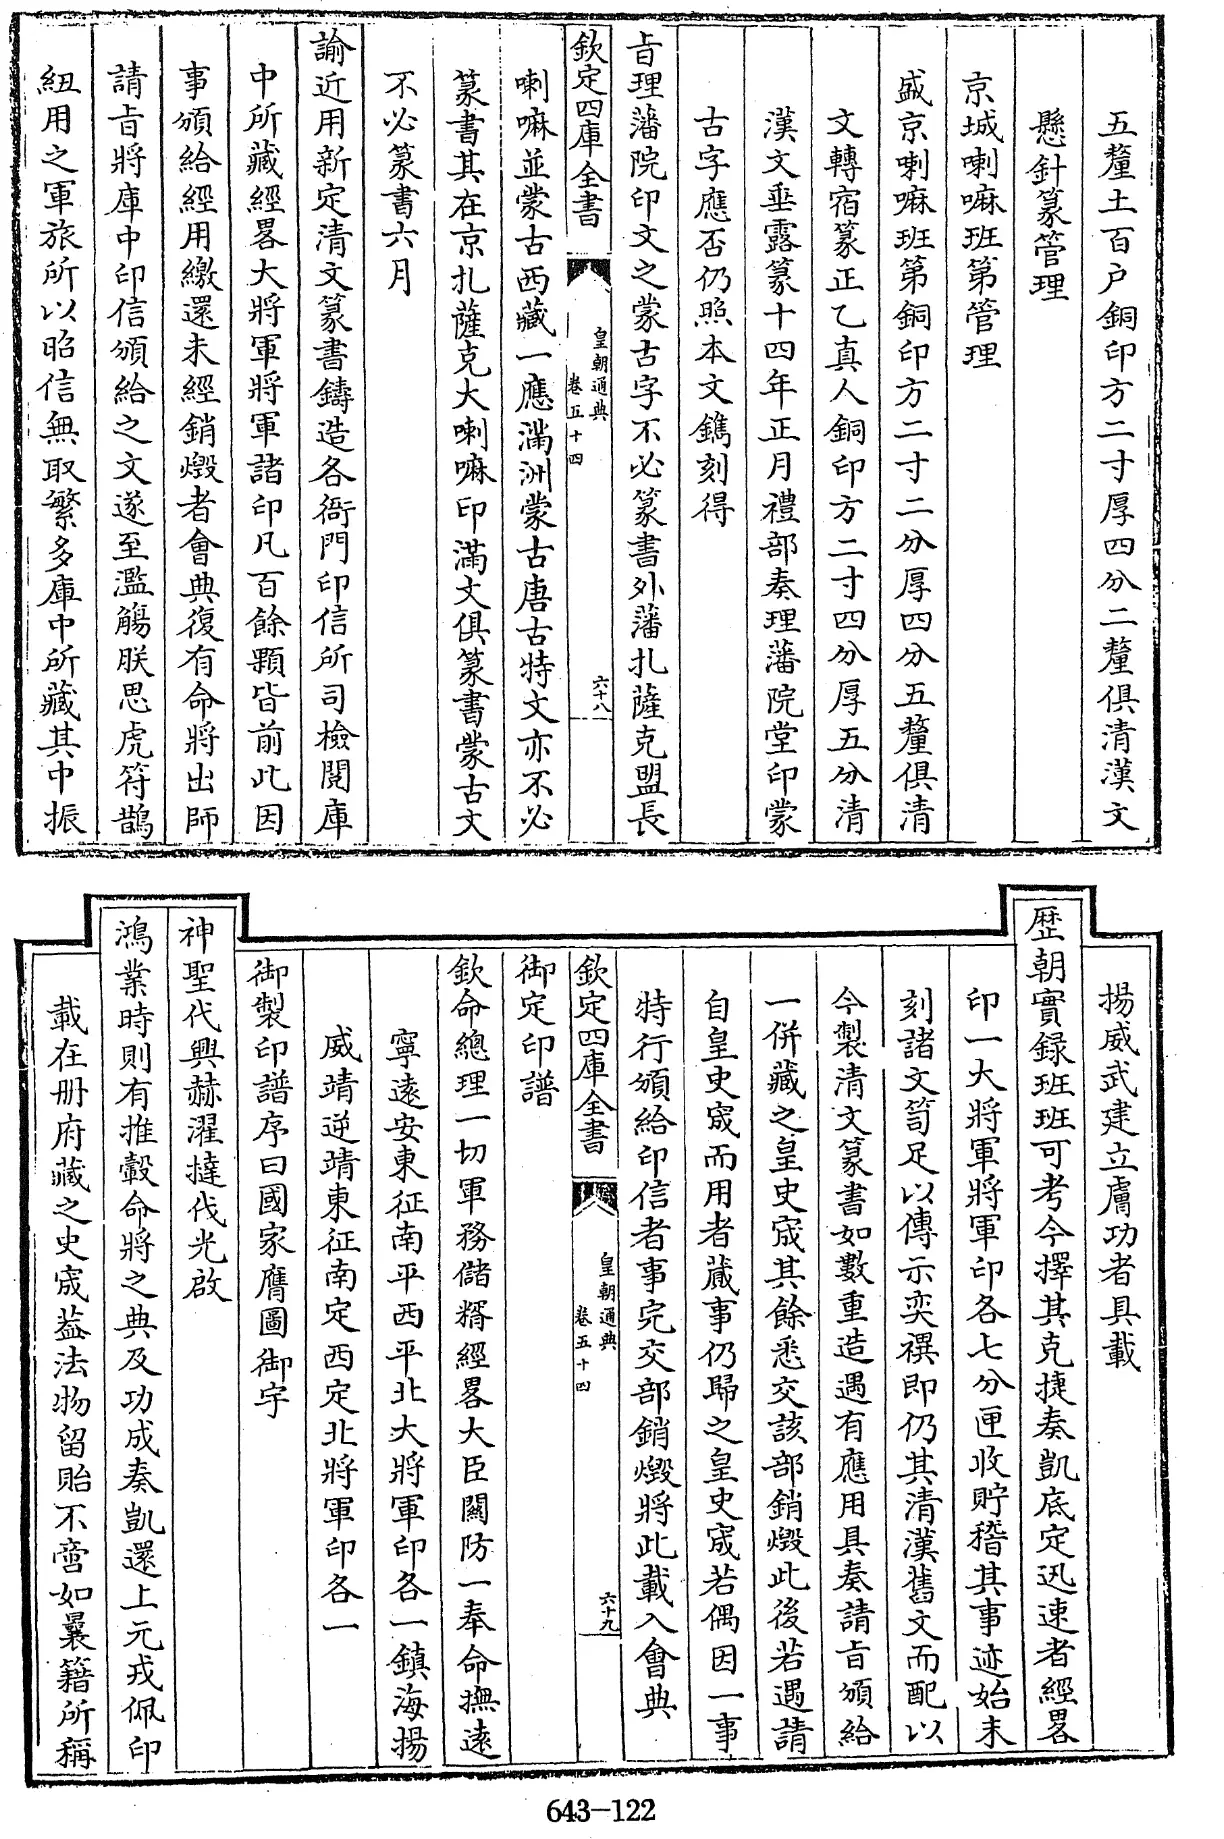 五釐土百户銅印方二寸厚四分二釐俱清漢文
懸針篆管理
京城喇嘛班第管理
盛京喇嘛班第銅印方二寸二分厚四分五釐俱清
文轉宿篆正乙真人銅印方二寸四分厚五分清
漢文垂露篆十四年正月禮部奏理藩院堂印蒙
古字應否仍照本文鐫刻得
㫖理藩院印文之蒙古字不必篆書外藩扎薩克盟長
欽定四庫全書
皇朝通典
卷五十四
六十八
喇嘛並蒙古西藏一應滿洲蒙古唐古特文亦不必
篆書其在京扎薩克大喇嘛印滿文俱篆書蒙古文
不必篆書六月
諭近用新定清文篆書鑄造各衙門印信所司檢閱庫
中所藏經畧大將軍將軍諸印凡百餘顆皆前此因
事頒給經用繳還未經銷燬者會典復有命將出師
請㫖將庫中印信頒給之文遂至濫觴朕思虎符鵲
紐用之軍旅所以昭信無取繁多庫中所藏其中振
揚威武建立膚功者具載
歷朝實録班班可考今擇其克捷奏凱底定迅速者經畧
印一大將軍將軍印各七分匣收貯稽其事迹始末
刻諸文笥足以傳示奕禩即仍其清漢舊文而配以
今製清文篆書如數重造遇有應用具奏請㫖頒給
一併藏之皇史宬其餘悉交該部銷燬此後若遇請
自皇史宬而用者蕆事仍歸之皇史宬若偶因一事
特行頒給印信者事完交部銷燬將此載入會典
欽定四庫全書
皇朝通典
卷五十四
六十九
御定印譜
欽命總理一切軍務儲糈經畧大臣關防一奉命撫遠
寧遠安東征南平西平北大將軍印各一鎮海揚
威靖逆靖東征南定西定北將軍印各一
御製印譜序曰國家膺圖御宇
神聖代興赫濯撻伐光啟
鴻業時則有推轂命將之典及功成奏凱還上元戎佩印
載在册府藏之史宬葢法物留貽不啻如曩籍所稱
643-122